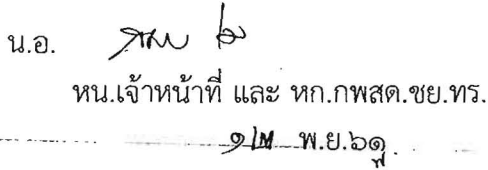 น.อ.
หน.เจ้าหน้าที่ และ หก.กพสด.ชย.ทร.
พ.ย.๖๑